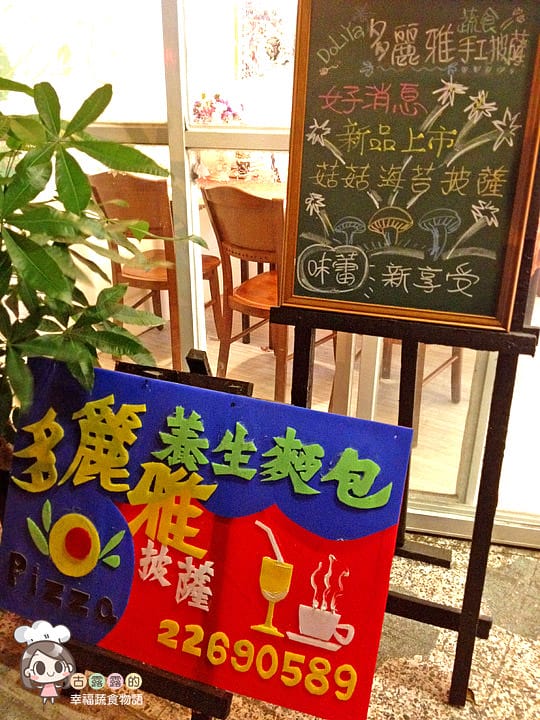 DoLiYa 多麗雅 蔬食
手工披薩
好消息
新品上市
菇菇海苔披薩
味蕾 新享受
多麗雅
養生麵包
披薩
Pizza
22690589
古露露的
幸福蔬食物語